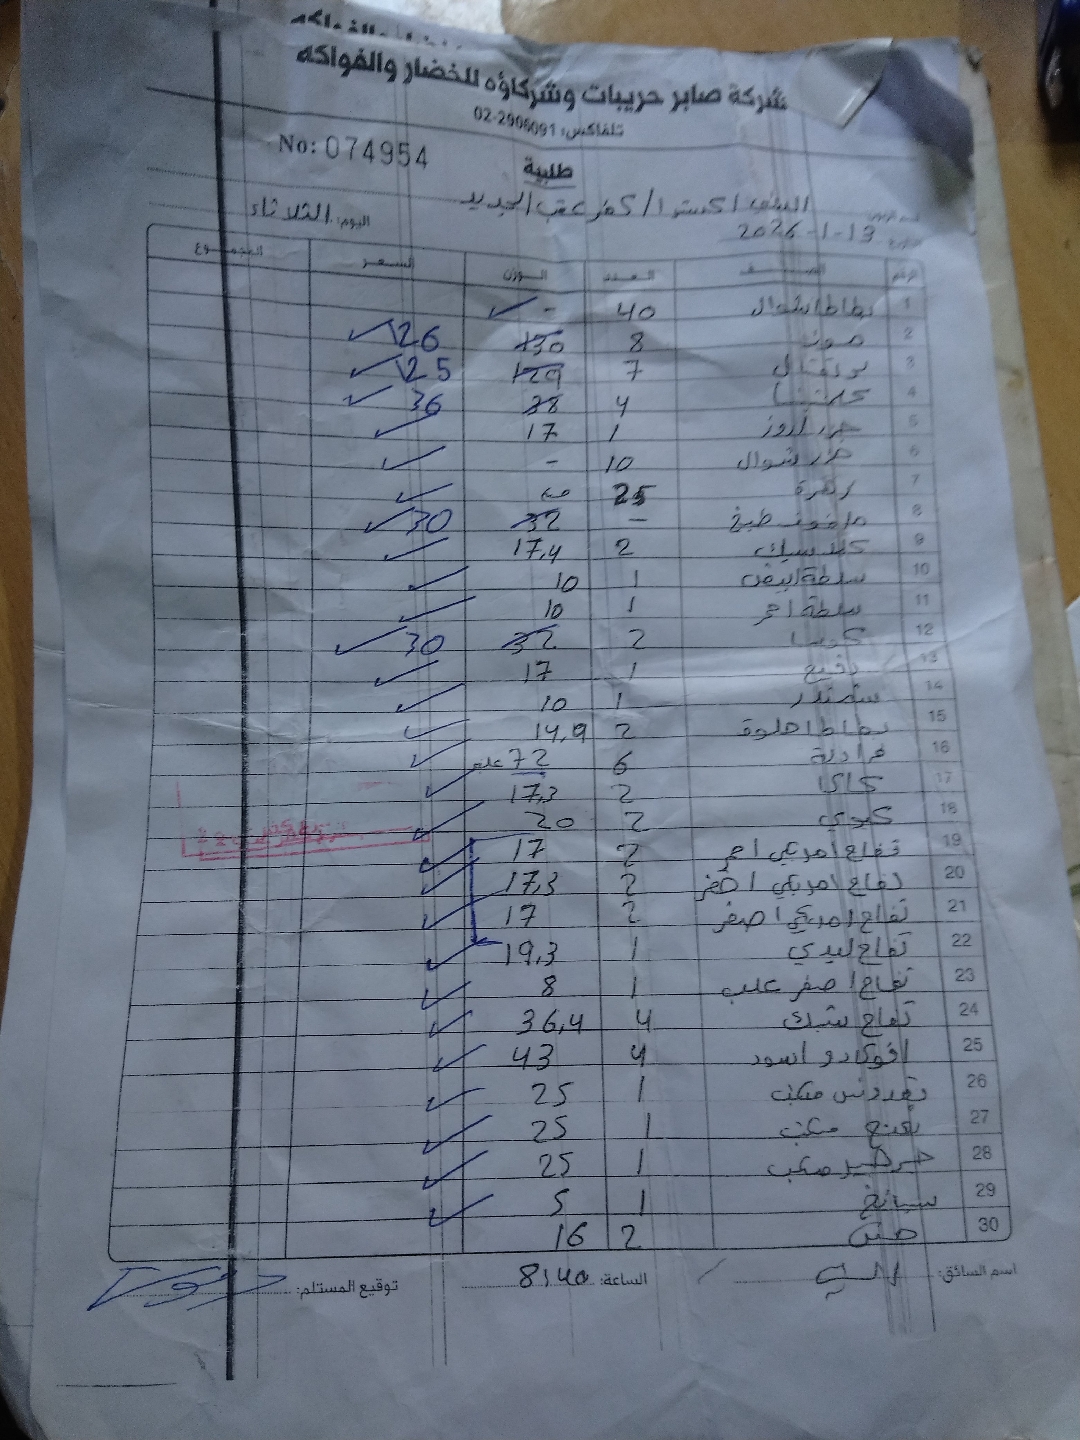 شركة صابر حريبات وشركاؤه للخضار والفواكه
تلفاكس: 02-2906091
No: 074954
طلبية
اكسترا / كفر عقب الجديد
اليوم: الثلاثاء
2026-1-13
الصنف العدد الوزن السعر المجموع
1 بطاطا شوال 40 -
2 موز 8 130 126
3 برتقال 7 129 125
4 كلمنتينا 4 38 36
5 جزر 1 17
6 جزر شوال 10 -
7 زهرة 25
8 ملفوف طبخ - 32 30
9 كلاسيك 2 17,4
10 سلطة ابيض 1 10
11 سلطة احمر 1 10
12 كوسا 2 32 30
13 1 17
14 شمندر 1 10
15 بطاطا حلوة 2 14,9
16 فراولة 6 72 علبة
17 كاكا 2 17,3
18 كيوي 2 20
19 تفاح امريكي احمر 2 17
20 تفاح امريكي اخضر 2 17,3
21 تفاح امريكي اصفر 2 17
22 تفاح ليدي 1 19,3
23 تفاح اصفر علب 1 8
24 تفاح شبك 4 36,4
25 افوكادو اسود 4 43
26 بقدونس مكتب 1 25
27 نعنع مكتب 1 25
28 جرجير مكتب 1 25
29 سبانخ 1 5
30 خس 2 16
اسم السائق:
الساعة: 8:40
توقيع المستلم: